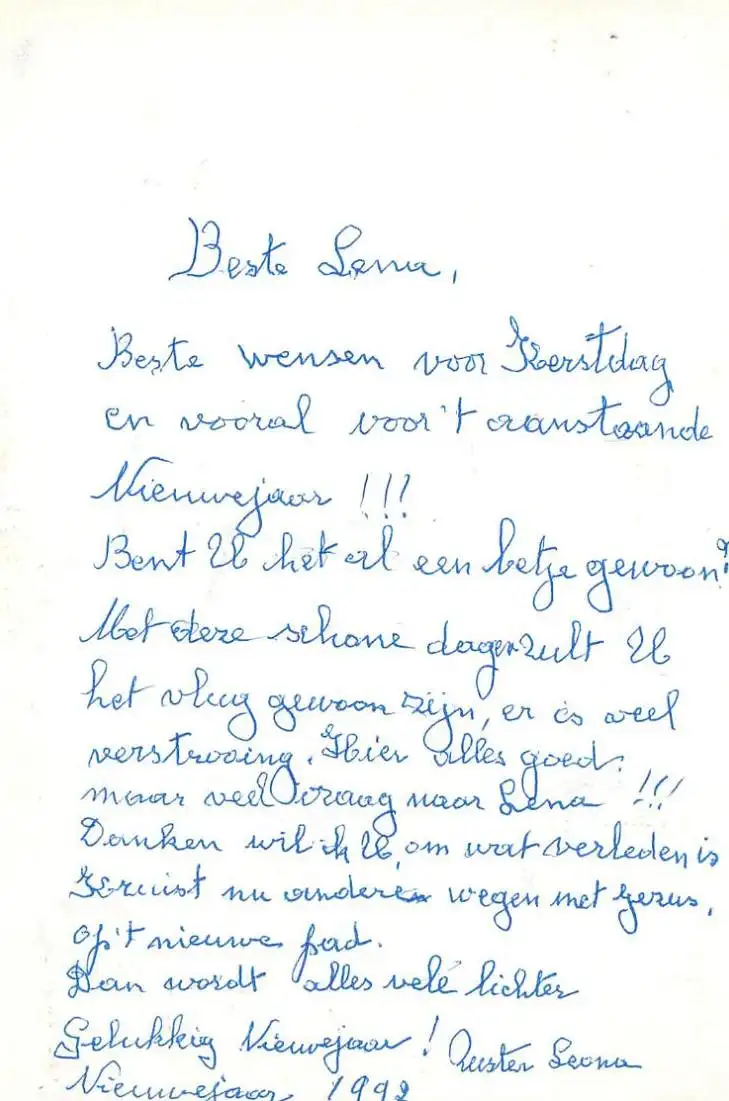 Beste Lena,
Beste wensen voor Kerstdag
en vooral voor 't aanstaande
Nieuwejaar !!!
Bent U het al een betje gewoon?
Met deze schone dagen zult U
het vlug gewoon zijn, er is veel
verstrooing. Hier alles goed.
maar veel vraag naar Lena !!!
Danken wil ik U, om wat verleden is
nu andere wegen met Jezus,
op 't nieuwe pad.
Dan wordt alles vele lichter
Gelukkig Nieuwejaar! Zuster Leona
Nieuwejaar 1992